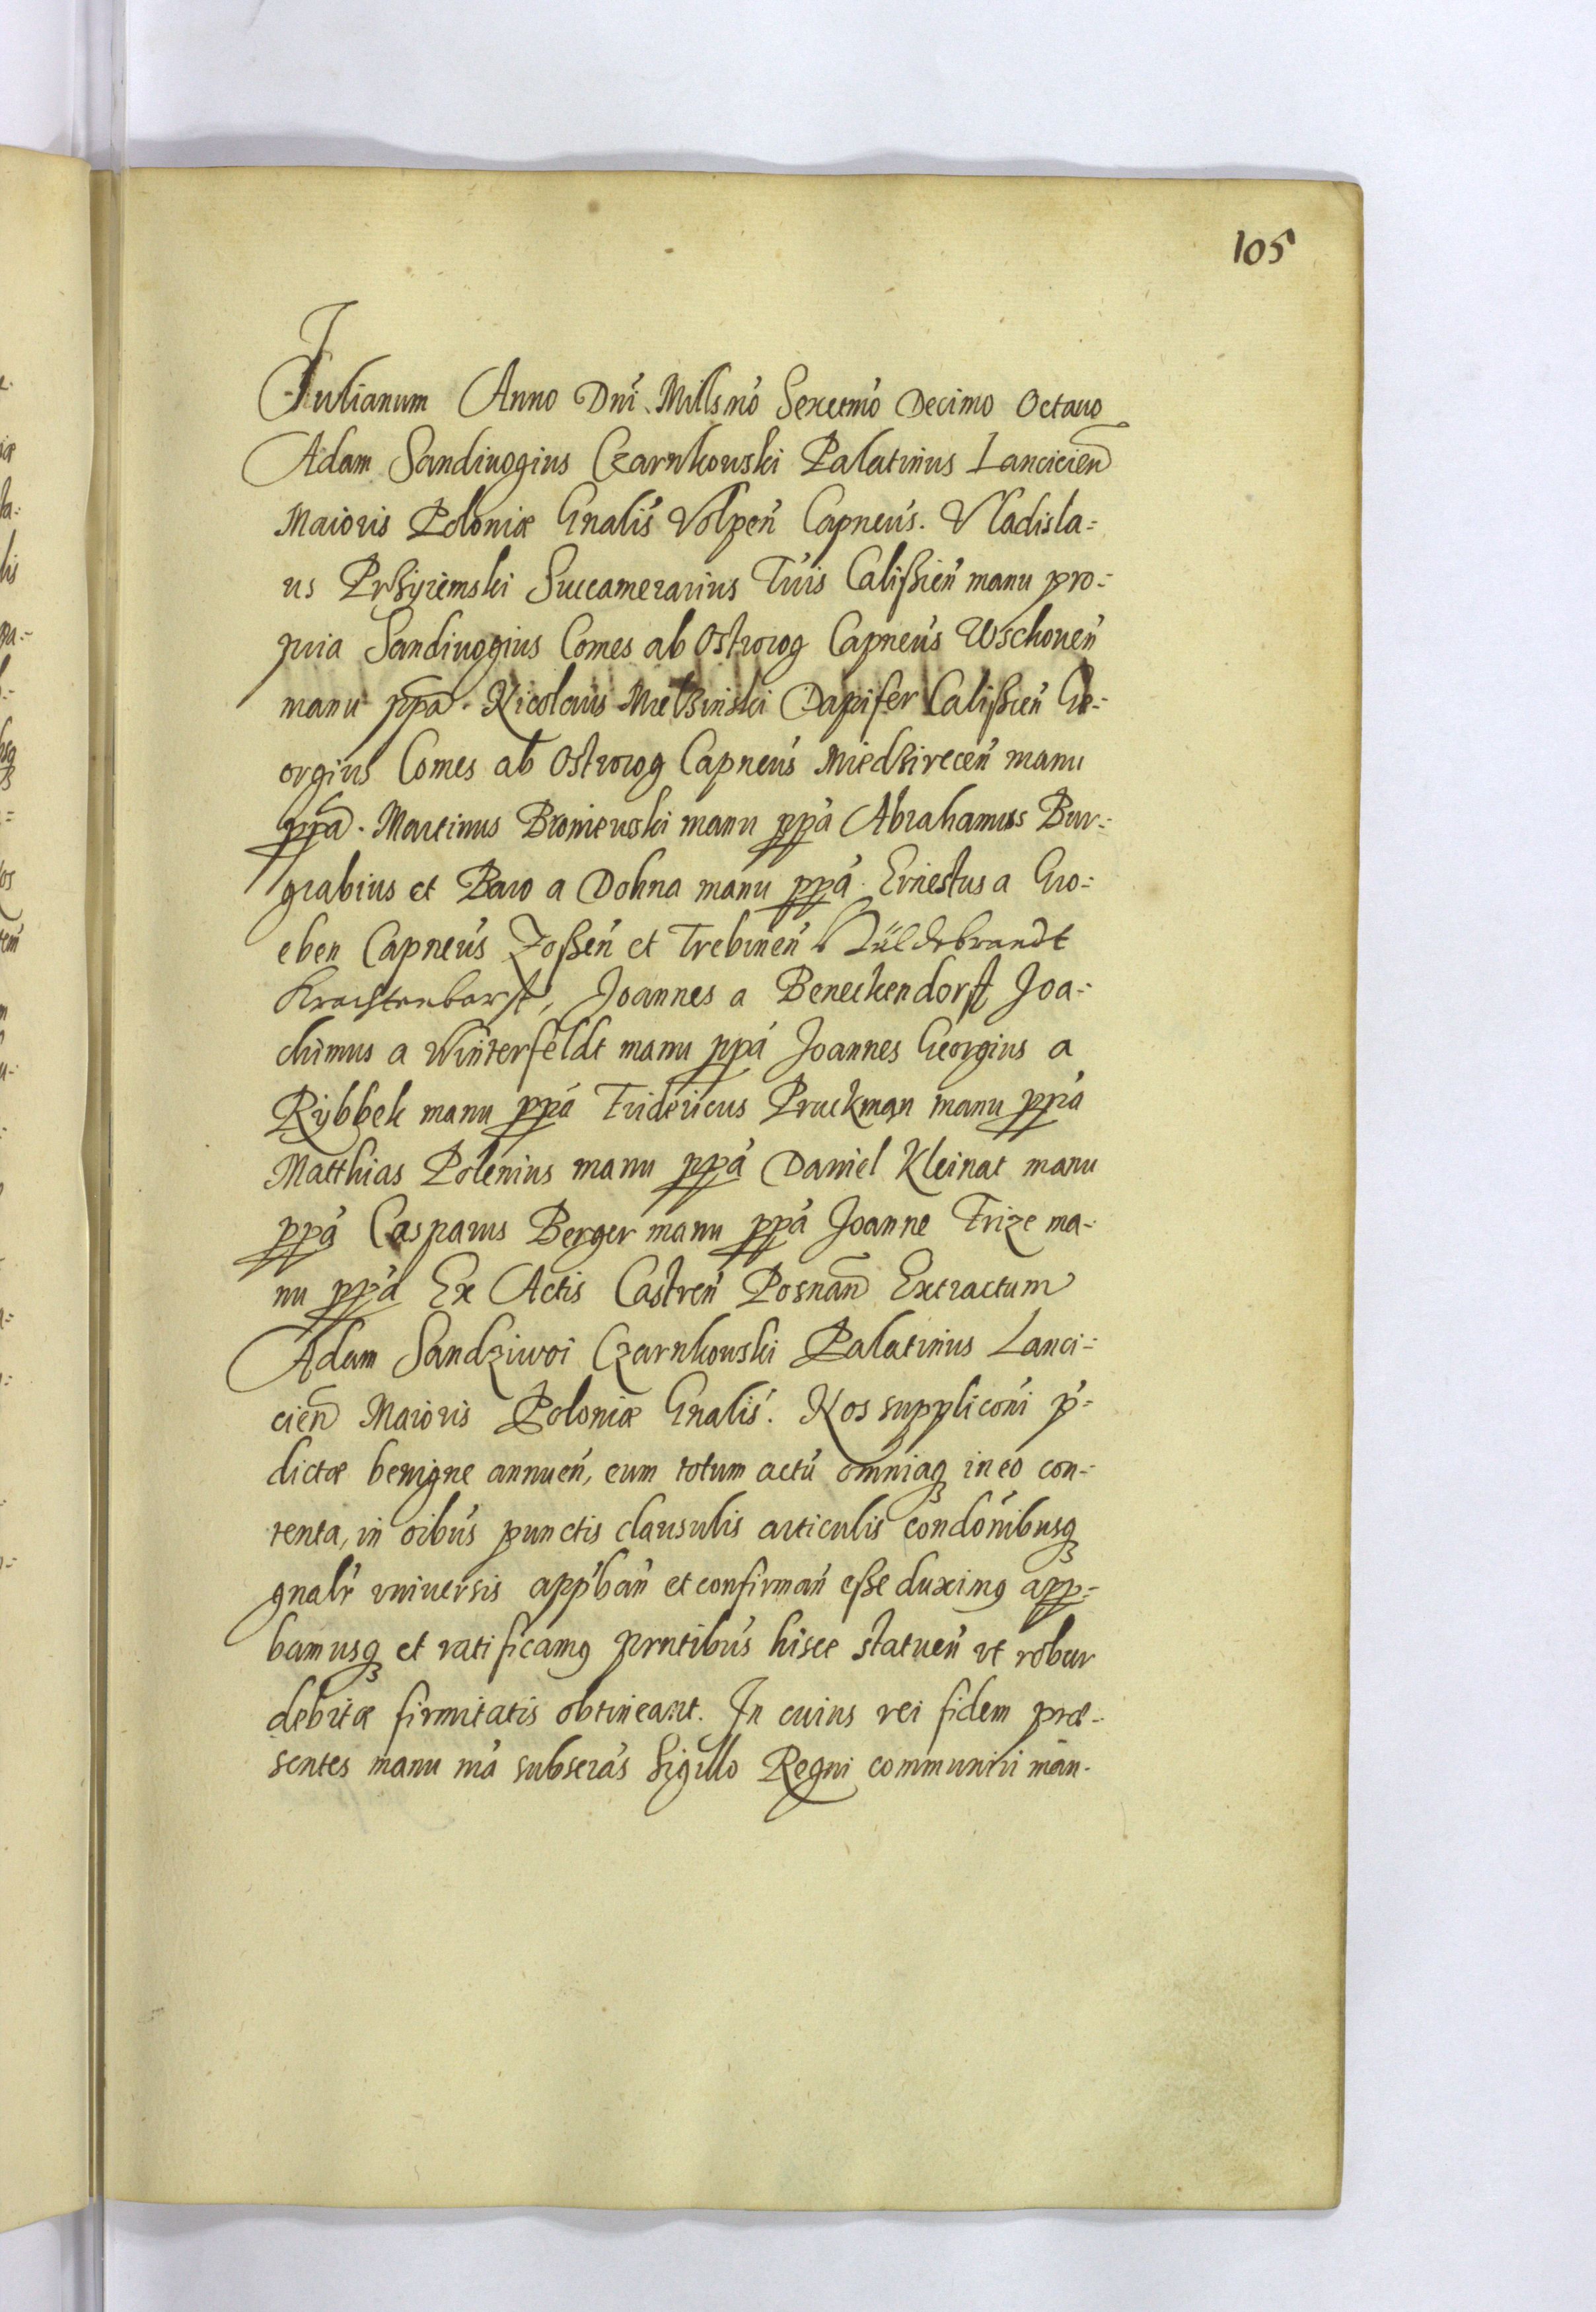 105
Julianum Anno Dnı́ Millsmó Sexctmó Decimo Octauo
Adam Sandiuogius Czarnkouski Palatinus Lancicien̄
Maioris Poloniæ Gnalís Volpeń Capneús. Vladisla=
us Prßyiemski Succamerarius Trı́s Calißień manu pro=
pria Sandiuogius Comes ab Ostrorog Capneús Wschoueń
manu ppa̅. Nicolaus Mielßinski Dapifer Calißień Ge=
orgius Comes ab Ostrorog Capneús Miedßireceń manu
ppa̅. Martinus Broniewski manu ppá Abrahamus Bur=
grabius et Baro a Dohna manu ppá. Ernestus a Gro=
eben Capneús Zoßeń et Trebineń Hildebrandt
Krachtenbarst, Joannes a Beneckendorff Joa=
chimus a Winterfeldt manu ppá Joannes Georgius a
Rybbek manu ppá Fridericus Pruckman manu ppá
Matthias Polenius manu ppá Daniel Kleinat manu
ppá Casparus Berger manu ppá Joanne Frize ma=
nu ppá Ex Actis Castreń Posnan̄ Extractum
Adam Sandziwoi Czarnkowski Palatinus Lanci=
cien̄ Maioris Poloniæ Gnalís. Nos suppliconı́ ṕ=
dictæ benigne annueń, eum totum actú omniaqꝫ in eo con=
tenta, in oibús punctis clausulis articulis condonı́busqꝫ
gnalŕ vniuersis apṕbań et confirmań eße duximꝰ app=
bamusqꝫ et ratificamꝰ prntibús hisce statueń vt robur
debitæ firmitatis obtineant. In cuius rei fidem præ=
sentes manu nrá subscrás Sigillo Regni communiri mán=